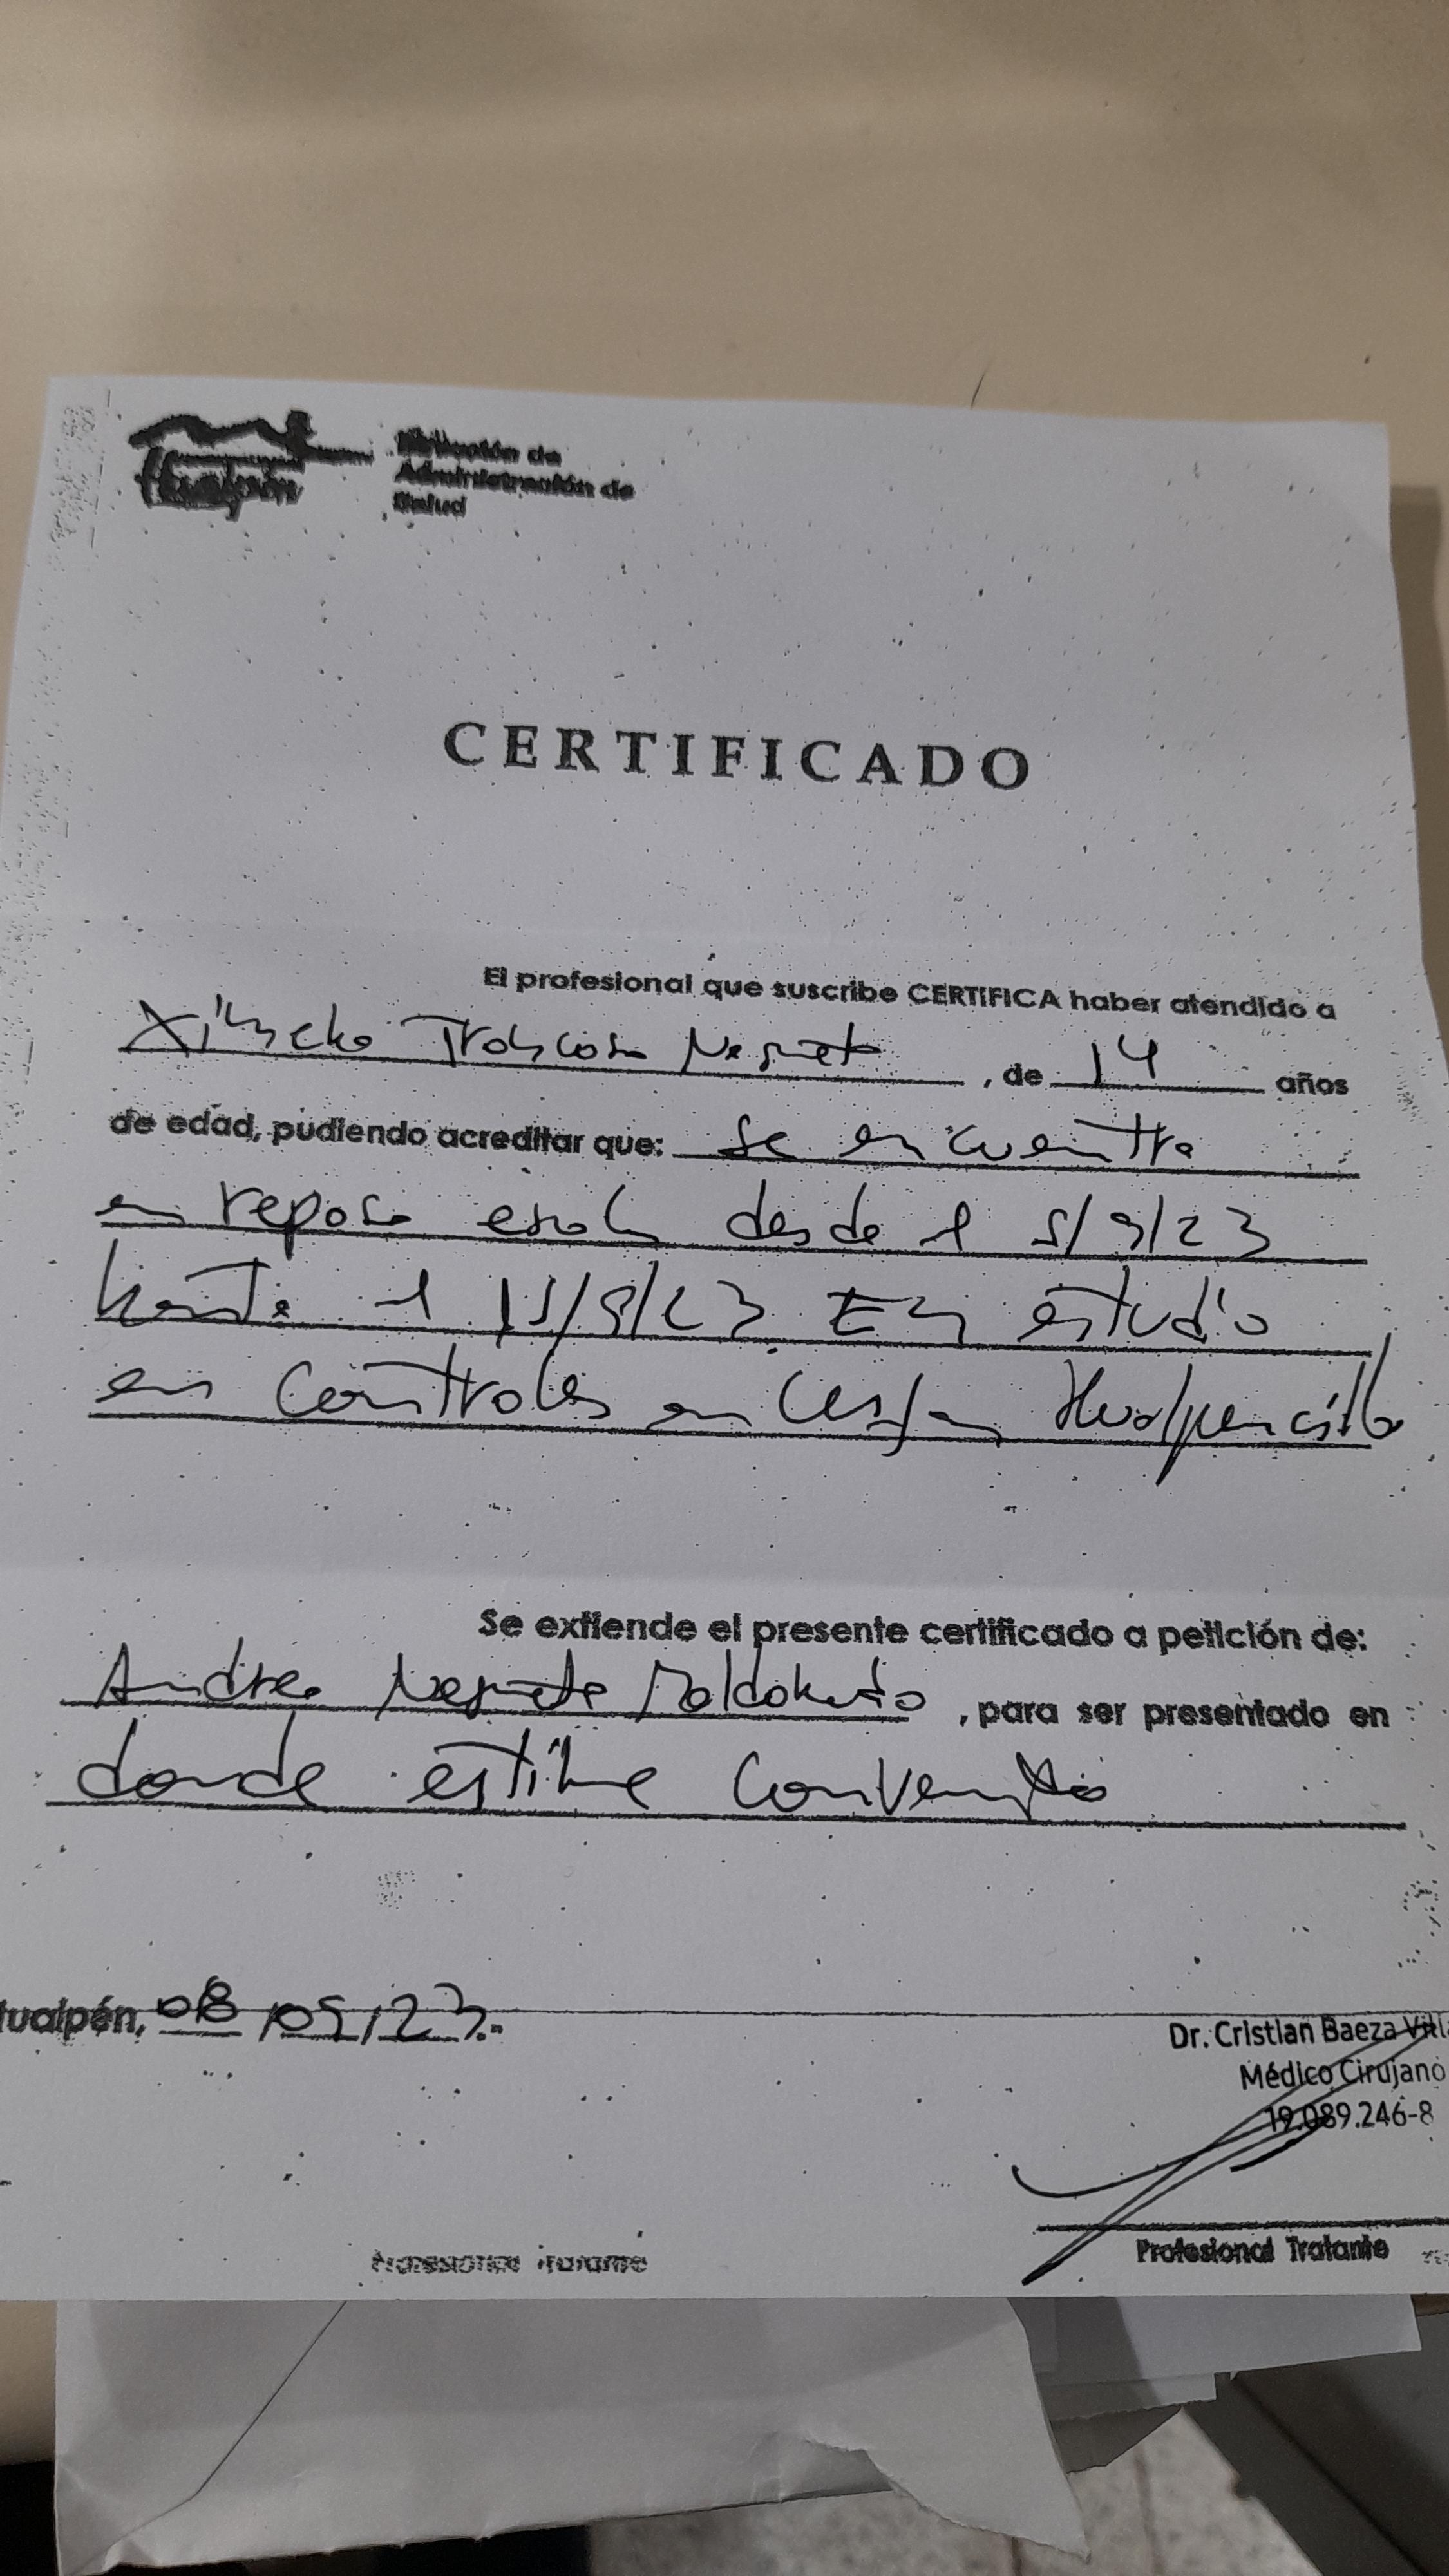 Hualpén
Dirección de
Administración de
Salud
CERTIFICADO
El profesional que suscribe CERTIFICA haber atendido a
Negrete, de 14 años
de edad, pudiendo acreditar que: se encuentra
en reposo escolar desde el 5/9/23
hasta el 15/9/23 En estudio
en controles en Cesfam Hualpencillo
Se extiende el presente certificado a petición de:
Andrea Negrete Maldonado, para ser presentado en
donde estime conveniente
Hualpén, 08/09/23.-
Dr. Cristian Baeza
Médico Cirujano
19.089.246-8
Profesional Tratante